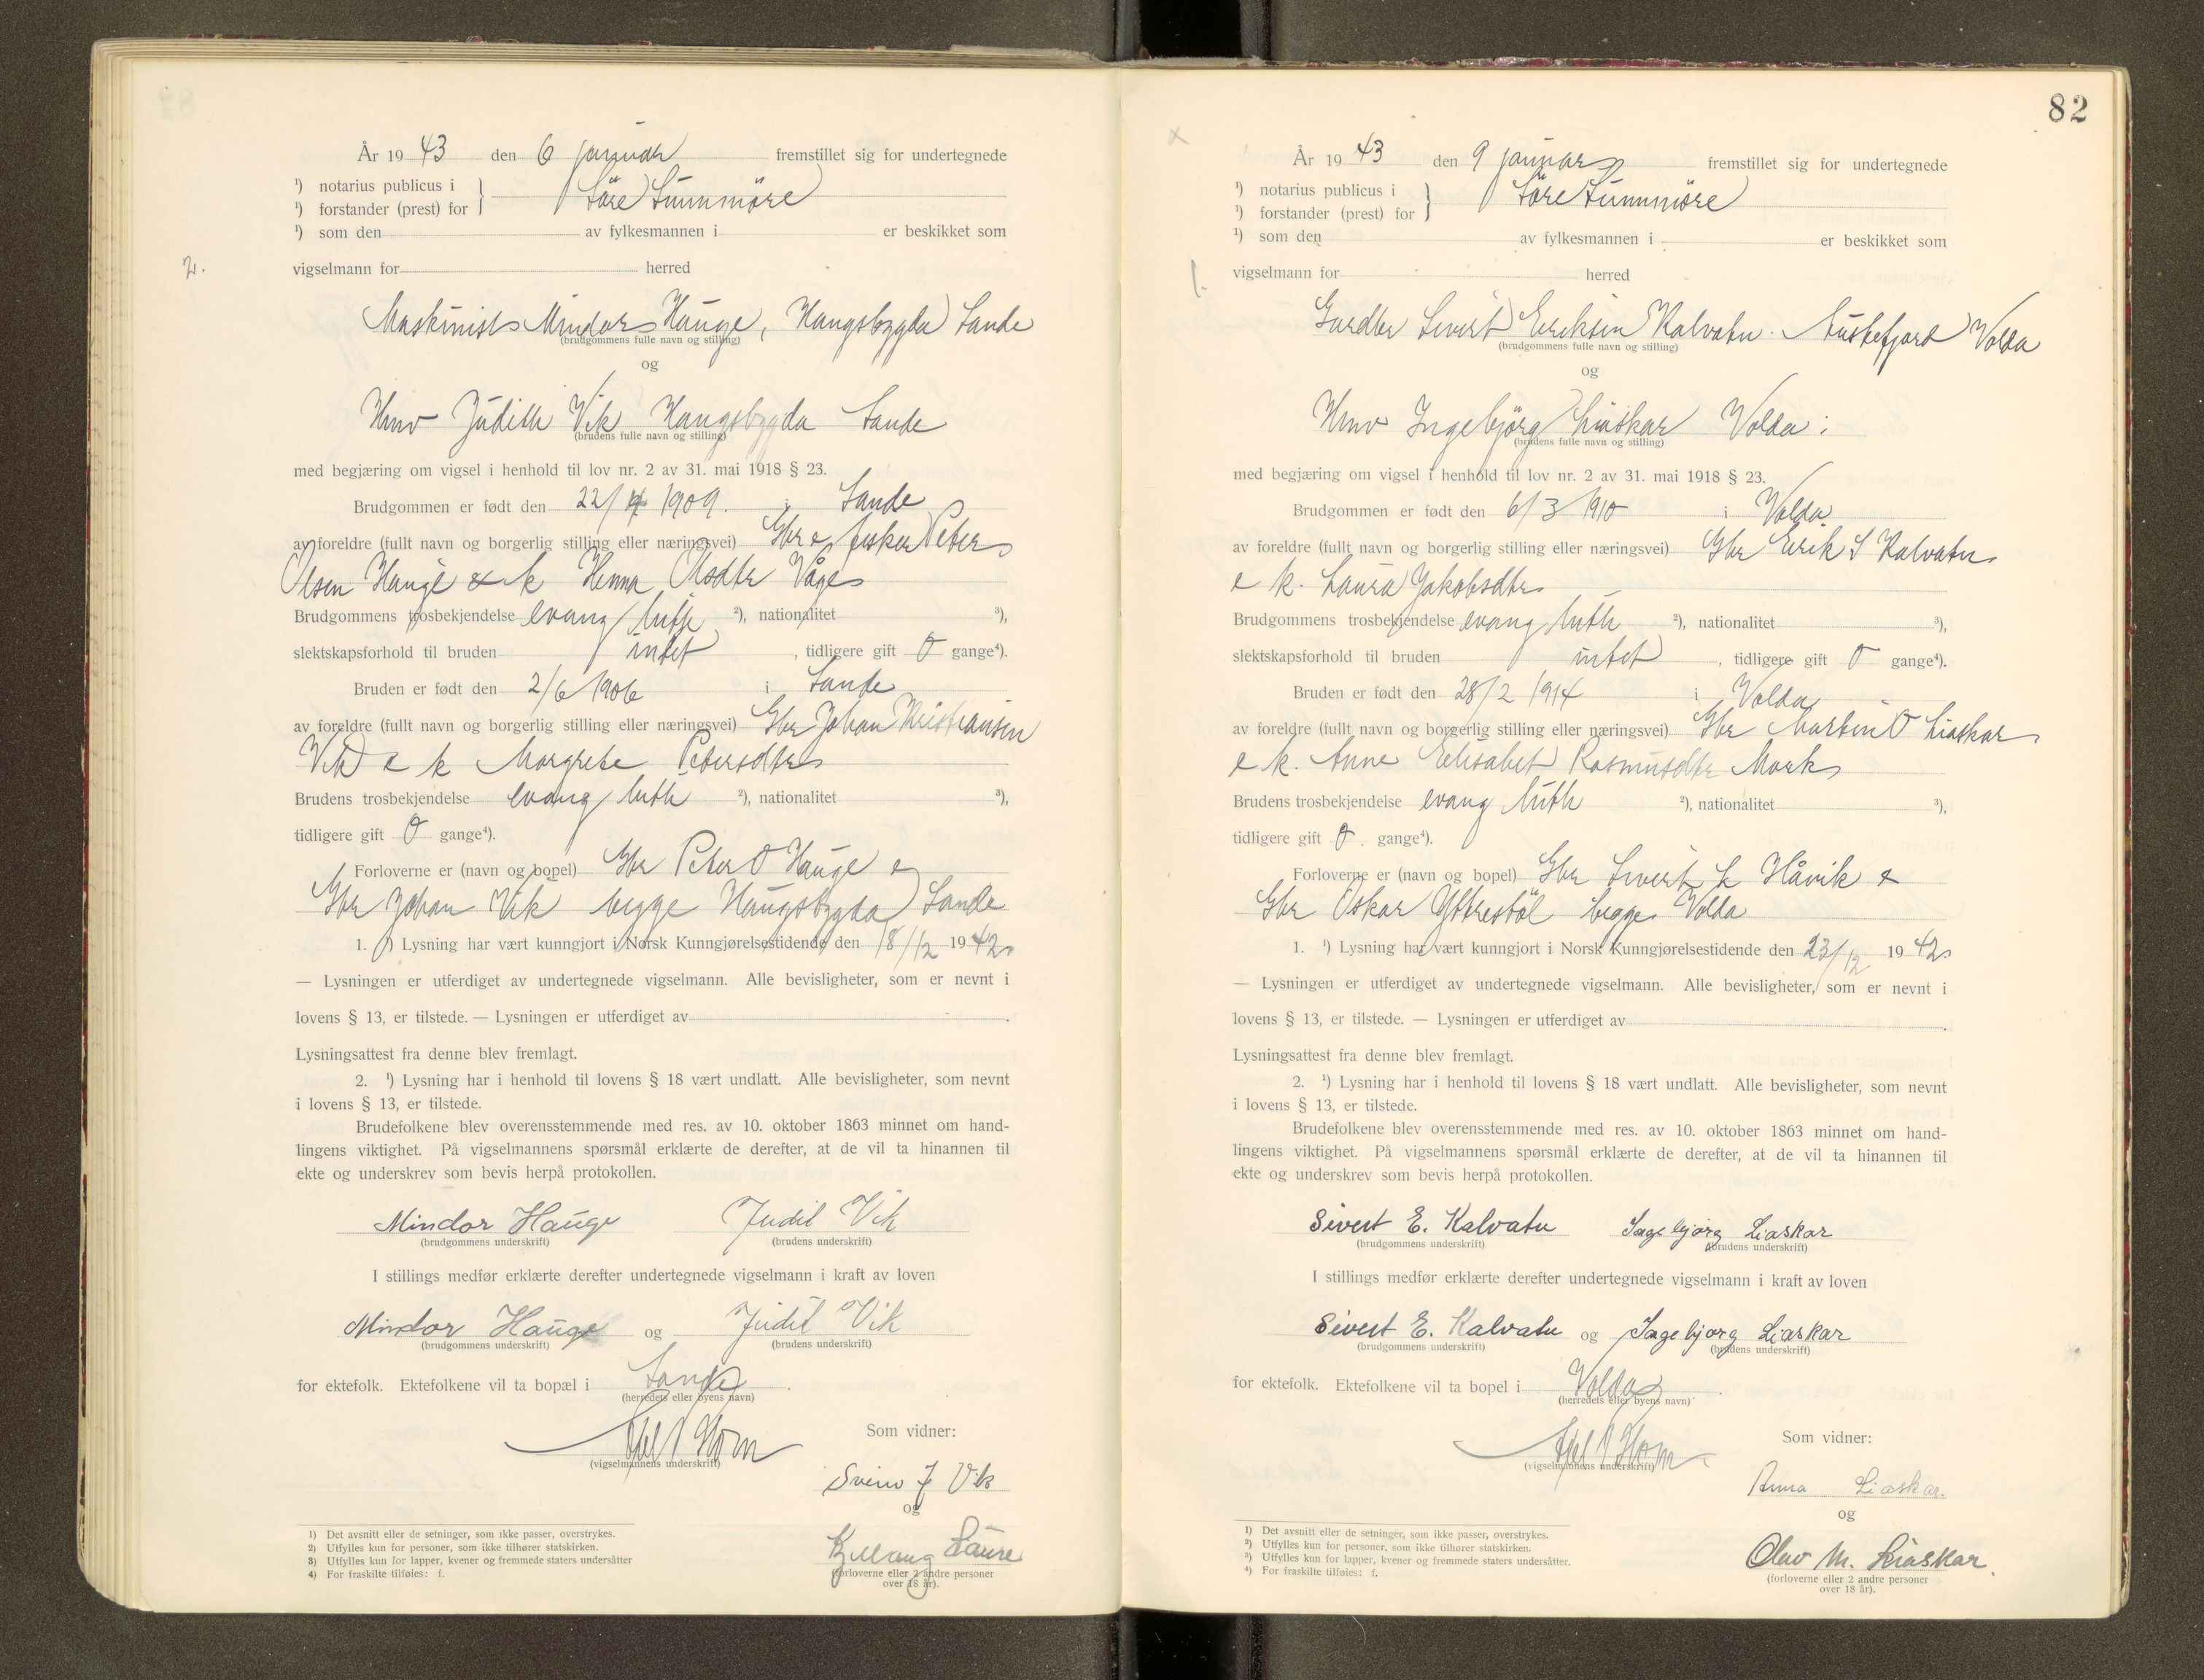 År 19 43 den 6 januar fremstillet sig for undertegnede
¹) notarius publicus i
¹) forstander (prest) for } Söre Sunnmöre
¹) som den av fylkesmannen i er beskikket som
2. vigselmann for herred
Maskinist Mindor Hauge, Haugsbygda Sande
(brudgommens fulle navn og stilling)
og
Hmv Judith Vik Haugsbygda Sande
(brudens fulle navn og stilling)
med begjæring om vigsel i henhold til lov nr. 2 av 31. mai 1918 § 23.
Brudgommen er født den 22/ 1909. i Sande
av foreldre (fullt navn og borgerlig stilling eller næringsvei) Gbr & fisker Peter
Olsen Hauge & k Olsdtr Våge
Brudgommens trosbekjendelse evang luth ²), nationalitet ³),
slektskapsforhold til bruden intet , tidligere gift 0 gange⁴).
Bruden er født den 2/6 1906 i Sande
av foreldre (fullt navn og borgerlig stilling eller næringsvei) Gbr Johan Kristiansen
Vik & k Margrete Petersdtr
Brudens trosbekjendelse evang luth ²), nationalitet ³),
tidligere gift 0 gange⁴).
Forloverne er (navn og bopel) Gbr Peter O Hauge &
Gbr Johan Vik begge Haugsbygda Sande
1. ¹) Lysning har vært kunngjort i Norsk Kunngjørelsestidende den 18/12 19 42
— Lysningen er utferdiget av undertegnede vigselmann. Alle bevisligheter, som er nevnt i
lovens § 13, er tilstede. — Lysningen er utferdiget av .
Lysningsattest fra denne blev fremlagt.
2. ¹) Lysning har i henhold til lovens § 18 vært undlatt. Alle bevisligheter, som nevnt
i lovens § 13, er tilstede.
Brudefolkene blev overensstemmende med res. av 10. oktober 1863 minnet om hand-
lingens viktighet. På vigselmannens spørsmål erklærte de derefter, at de vil ta hinannen til
ekte og underskrev som bevis herpå protokollen.
Mindor Hauge Judit Vik
(brudgommens underskrift) (brudens underskrift)
I stillings medfør erklærte derefter undertegnede vigselmann i kraft av loven
Mindor Hauge og Judit Vik
(brudgommens underskrift) (brudens underskrift)
for ektefolk. Ektefolkene vil ta bopæl i Sande .
(herredets eller byens navn)
Horn Som vidner:
(vigselmannens underskrift)
Svein J Vik
og
Saure
(forloverne eller 2 andre personer
over 18 år).
1) Det avsnitt eller de setninger, som ikke passer, overstrykes.
2) Utfylles kun for personer, som ikke tilhører statskirken.
3) Utfylles kun for lapper, kvener og fremmede staters undersåtter
4) For fraskilte tilføies: f.
82
x
År 19 43 den 9 januar fremstillet sig for undertegnede
¹) notarius publicus i
¹) forstander (prest) for } Söre Sunnmöre
¹) som den av fylkesmannen i er beskikket som
1. vigselmann for herred
Gardbr Sivert Eriksen Kalvatn. Austefjord Volda
(brudgommens fulle navn og stilling)
og
Hmv Ingebjörg Liaskar Volda.
(brudens fulle navn og stilling)
med begjæring om vigsel i henhold til lov nr. 2 av 31. mai 1918 § 23.
Brudgommen er født den 6/3 1910 i Volda
av foreldre (fullt navn og borgerlig stilling eller næringsvei) Gbr Eirik S Kalvatn
& k. Laura Jakobsdtr
Brudgommens trosbekjendelse evang luth ²), nationalitet ³),
slektskapsforhold til bruden intet , tidligere gift 0 gange⁴).
Bruden er født den 28/2 1914 i Volda
av foreldre (fullt navn og borgerlig stilling eller næringsvei) Gbr Martin O Liaskar
& k. Anne Elisabet Rasmusdtr Mork
Brudens trosbekjendelse evang luth ²), nationalitet ³),
tidligere gift 0. gange⁴).
Forloverne er (navn og bopel) Gbr Sivert L Håvik &
Gbr Oskar Yttrestöl begge Volda
1. ¹) Lysning har vært kunngjort i Norsk Kunngjørelsestidende den 23/12 19 42
— Lysningen er utferdiget av undertegnede vigselmann. Alle bevisligheter, som er nevnt i
lovens § 13, er tilstede. — Lysningen er utferdiget av .
Lysningsattest fra denne blev fremlagt.
2. ¹) Lysning har i henhold til lovens § 18 vært undlatt. Alle bevisligheter, som nevnt
i lovens § 13, er tilstede.
Brudefolkene blev overensstemmende med res. av 10. oktober 1863 minnet om hand-
lingens viktighet. På vigselmannens spørsmål erklærte de derefter, at de vil ta hinannen til
ekte og underskrev som bevis herpå protokollen.
Sivert E. Kalvatn Ingebjørg Liaskar
(brudgommens underskrift) (brudens underskrift)
I stillings medfør erklærte derefter undertegnede vigselmann i kraft av loven
Sivert E. Kalvatn og Ingebjørg Liaskar
(brudgommens underskrift) (brudens underskrift)
for ektefolk. Ektefolkene vil ta bopel i Volda .
(herredets eller byens navn)
Horn Som vidner:
(vigselmannens underskrift)
Anna Liaskar.
og
Olav M. Liaskar.
(forloverne eller 2 andre personer
over 18 år).
1) Det avsnitt eller de setninger, som ikke passer, overstrykes.
2) Utfylles kun for personer, som ikke tilhører statskirken.
3) Utfylles kun for lapper, kvener og fremmede staters undersåtter.
4) For fraskilte tilføies: f.